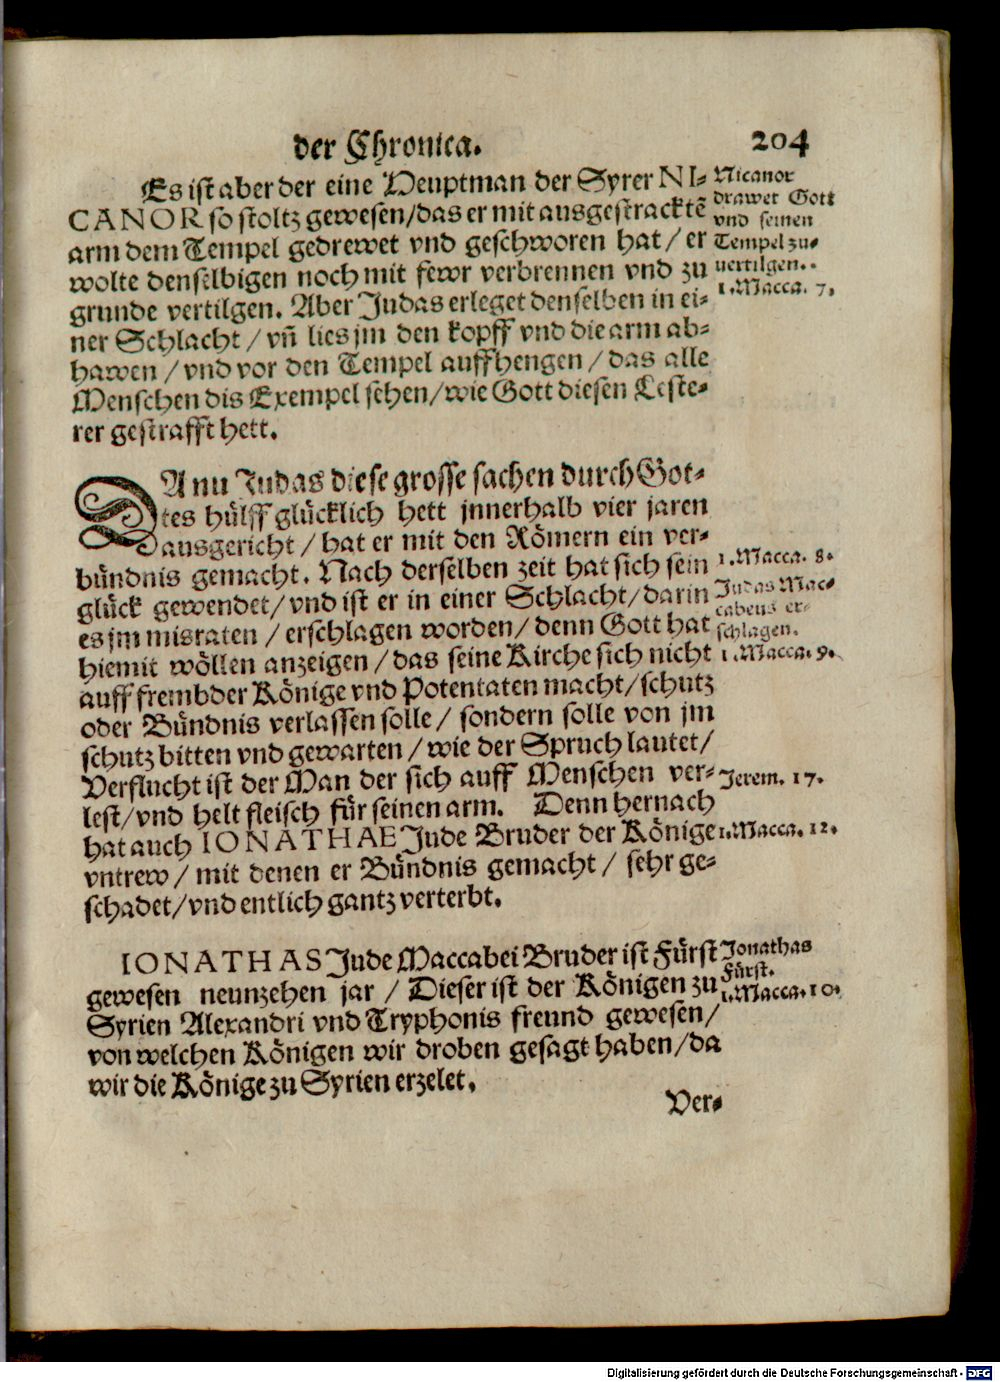 der Chronica. 204
Es ist aber der eine Heuptman der Syrer NI-
CANOR so stoltz gewesen/das er mit ausgestracktē
arm dem Tempel gedrewet vnd geschworen hat/ er
wolte denselbigen noch mit fewr verbrennen vnd zu
grunde vertilgen. Aber Judas erleget denselben in ei-
ner Schlacht/ vn̄ lies jm den kopff vnd die arm ab-
hawen/vnd vor den Tempel auffhengen/das alle
Menschen dis Exempel sehen/wie Gott diesen Leste-
rer gestrafft hett.
Nicanor
drawet Gott
vnd seinen
Tempel zu-
uertilgen.
1. Macca. 7.
DA nu Judas diese grosse sachen durch Got-
tes hülff glücklich hett jnnerhalb vier jaren
ausgericht/ hat er mit den Römern ein ver-
bündnis gemacht. Nach derselben zeit hat sich sein
glück gewendet/vnd ist er in einer Schlacht/darin
es jm misraten/erschlagen worden/denn Gott hat
hiemit wöllen anzeigen/das seine Kirche sich nicht
auff frembder Könige vnd Potentaten macht/schutz
oder Bündnis verlassen solle/ sondern solle von jm
schutz bitten vnd gewarten/wie der Spruch lautet/
Verflucht ist der Man der sich auff Menschen ver-
lest/vnd helt fleisch für seinen arm. Denn hernach
hat auch IONATHAE Jude Bruder der Könige
vntrew/mit denen er Bündnis gemacht/ sehr ge-
schadet/vnd entlich gantz verterbt.
1. Macca. 8.
Judas Mac-
cabeus er-
schlagen.
1. Macca. 9.
Jerem. 17.
1. Macca. 12.
IONATHAS Jude Maccabei Bruder ist Fürst
gewesen neunzehen jar/ Dieser ist der Königen zu
Syrien Alexandri vnd Tryphonis freund gewesen/
von welchen Königen wir droben gesagt haben/da
wir die Könige zu Syrien erzelet.
Jonathas
Fürst.
1. Macca. 10.
Ver-
Digitalisierung gefördert durch die Deutsche Forschungsgemeinschaft - DFG